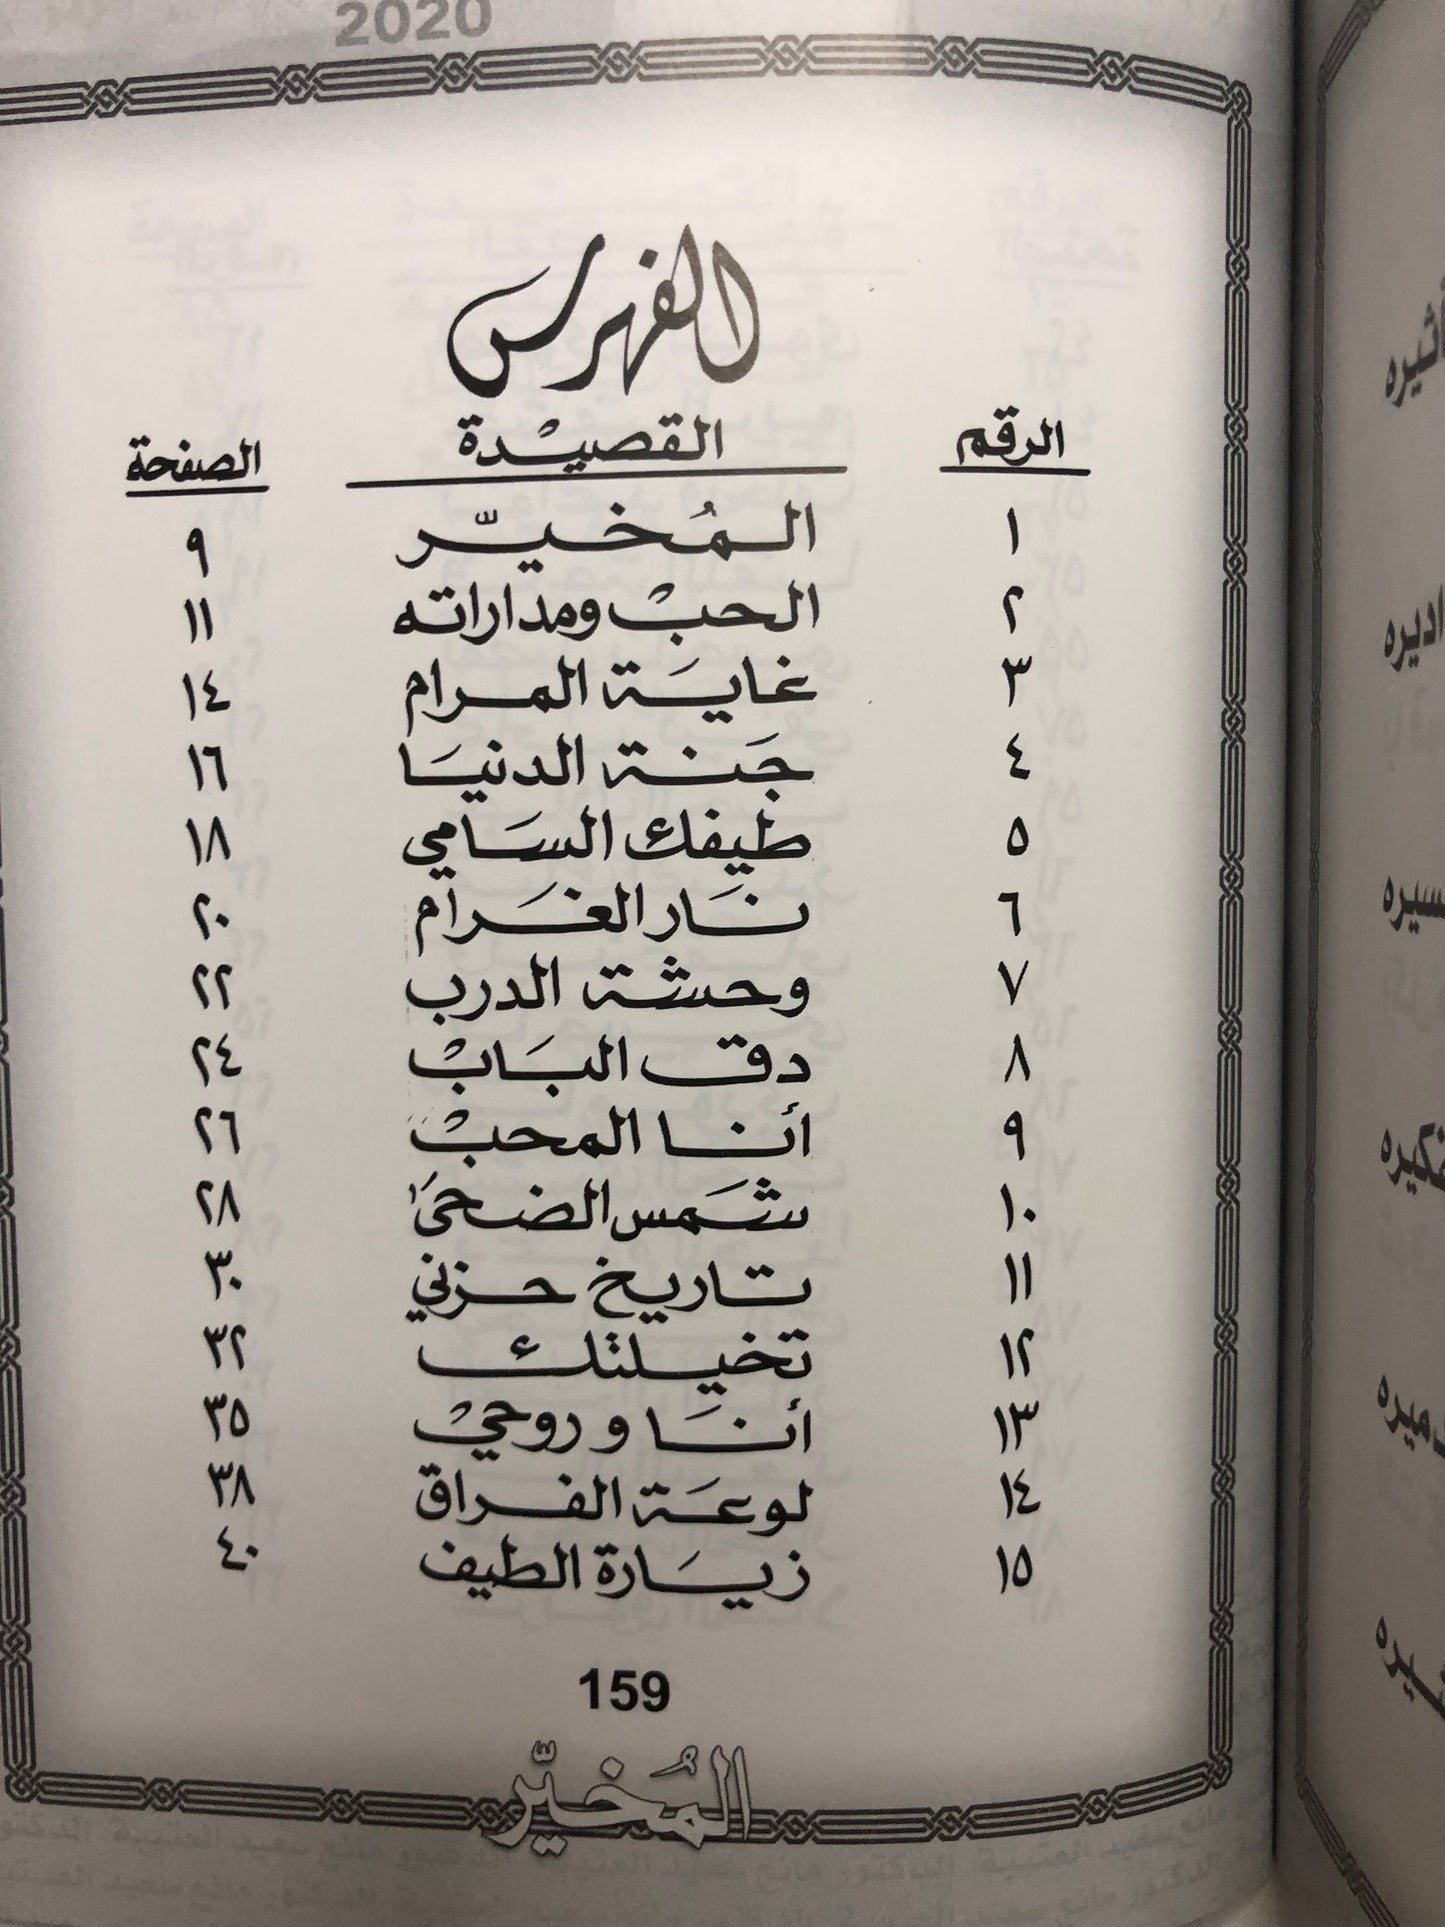 2020
الفهرس
الرقم القصيدة الصفحة
١ المُخيّر ٩
٢ الحبْ ومداراته ١١
٣ غايَة المرام ١٤
٤ جَنة الدنيَا ١٦
٥ طيفك السَامي ١٨
٦ نَار الغَرام ٢٠
٧ وحشة الدرب ٢٢
٨ دق البَابْ ٢٤
٩ أنا المحبْ ٢٦
١٠ شَمس الضحىَ ٢٨
١١ تاريخ حزني ٣٠
١٢ تخيلتك ٣٢
١٣ أنَا و روحيْ ٣٥
١٤ لوعَة الفراق ٣٨
١٥ زيَارة الطيف ٤٠
159
المُخيّر